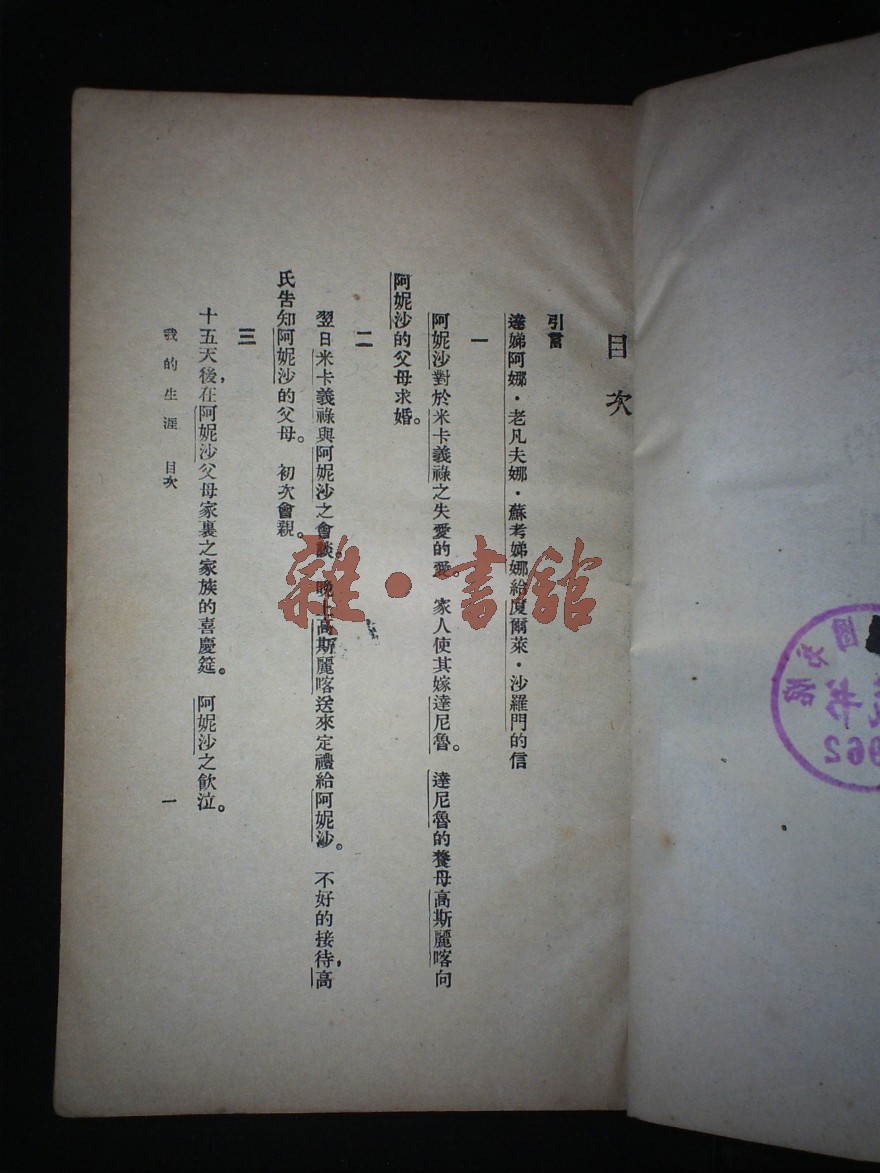 目次
引言
達娣阿娜・老凡夫娜・蘇考娣娜給廈爾萊・沙羅門的信
一
阿妮沙對於米卡義祿之失愛的愛。家人使其嫁達尼魯。達尼魯的養母高斯麗喀向
阿妮沙的父母求婚。
二
翌日米卡義祿與阿妮沙之會談。晚上高斯麗喀送來定禮給阿妮沙。不好的接待，高
氏告知阿妮沙的父母。初次會親。
三
十五天後，在阿妮沙父母家裏之家族的喜慶筵。阿妮沙之飲泣。
我的生涯 目次
一
雜・書館
962